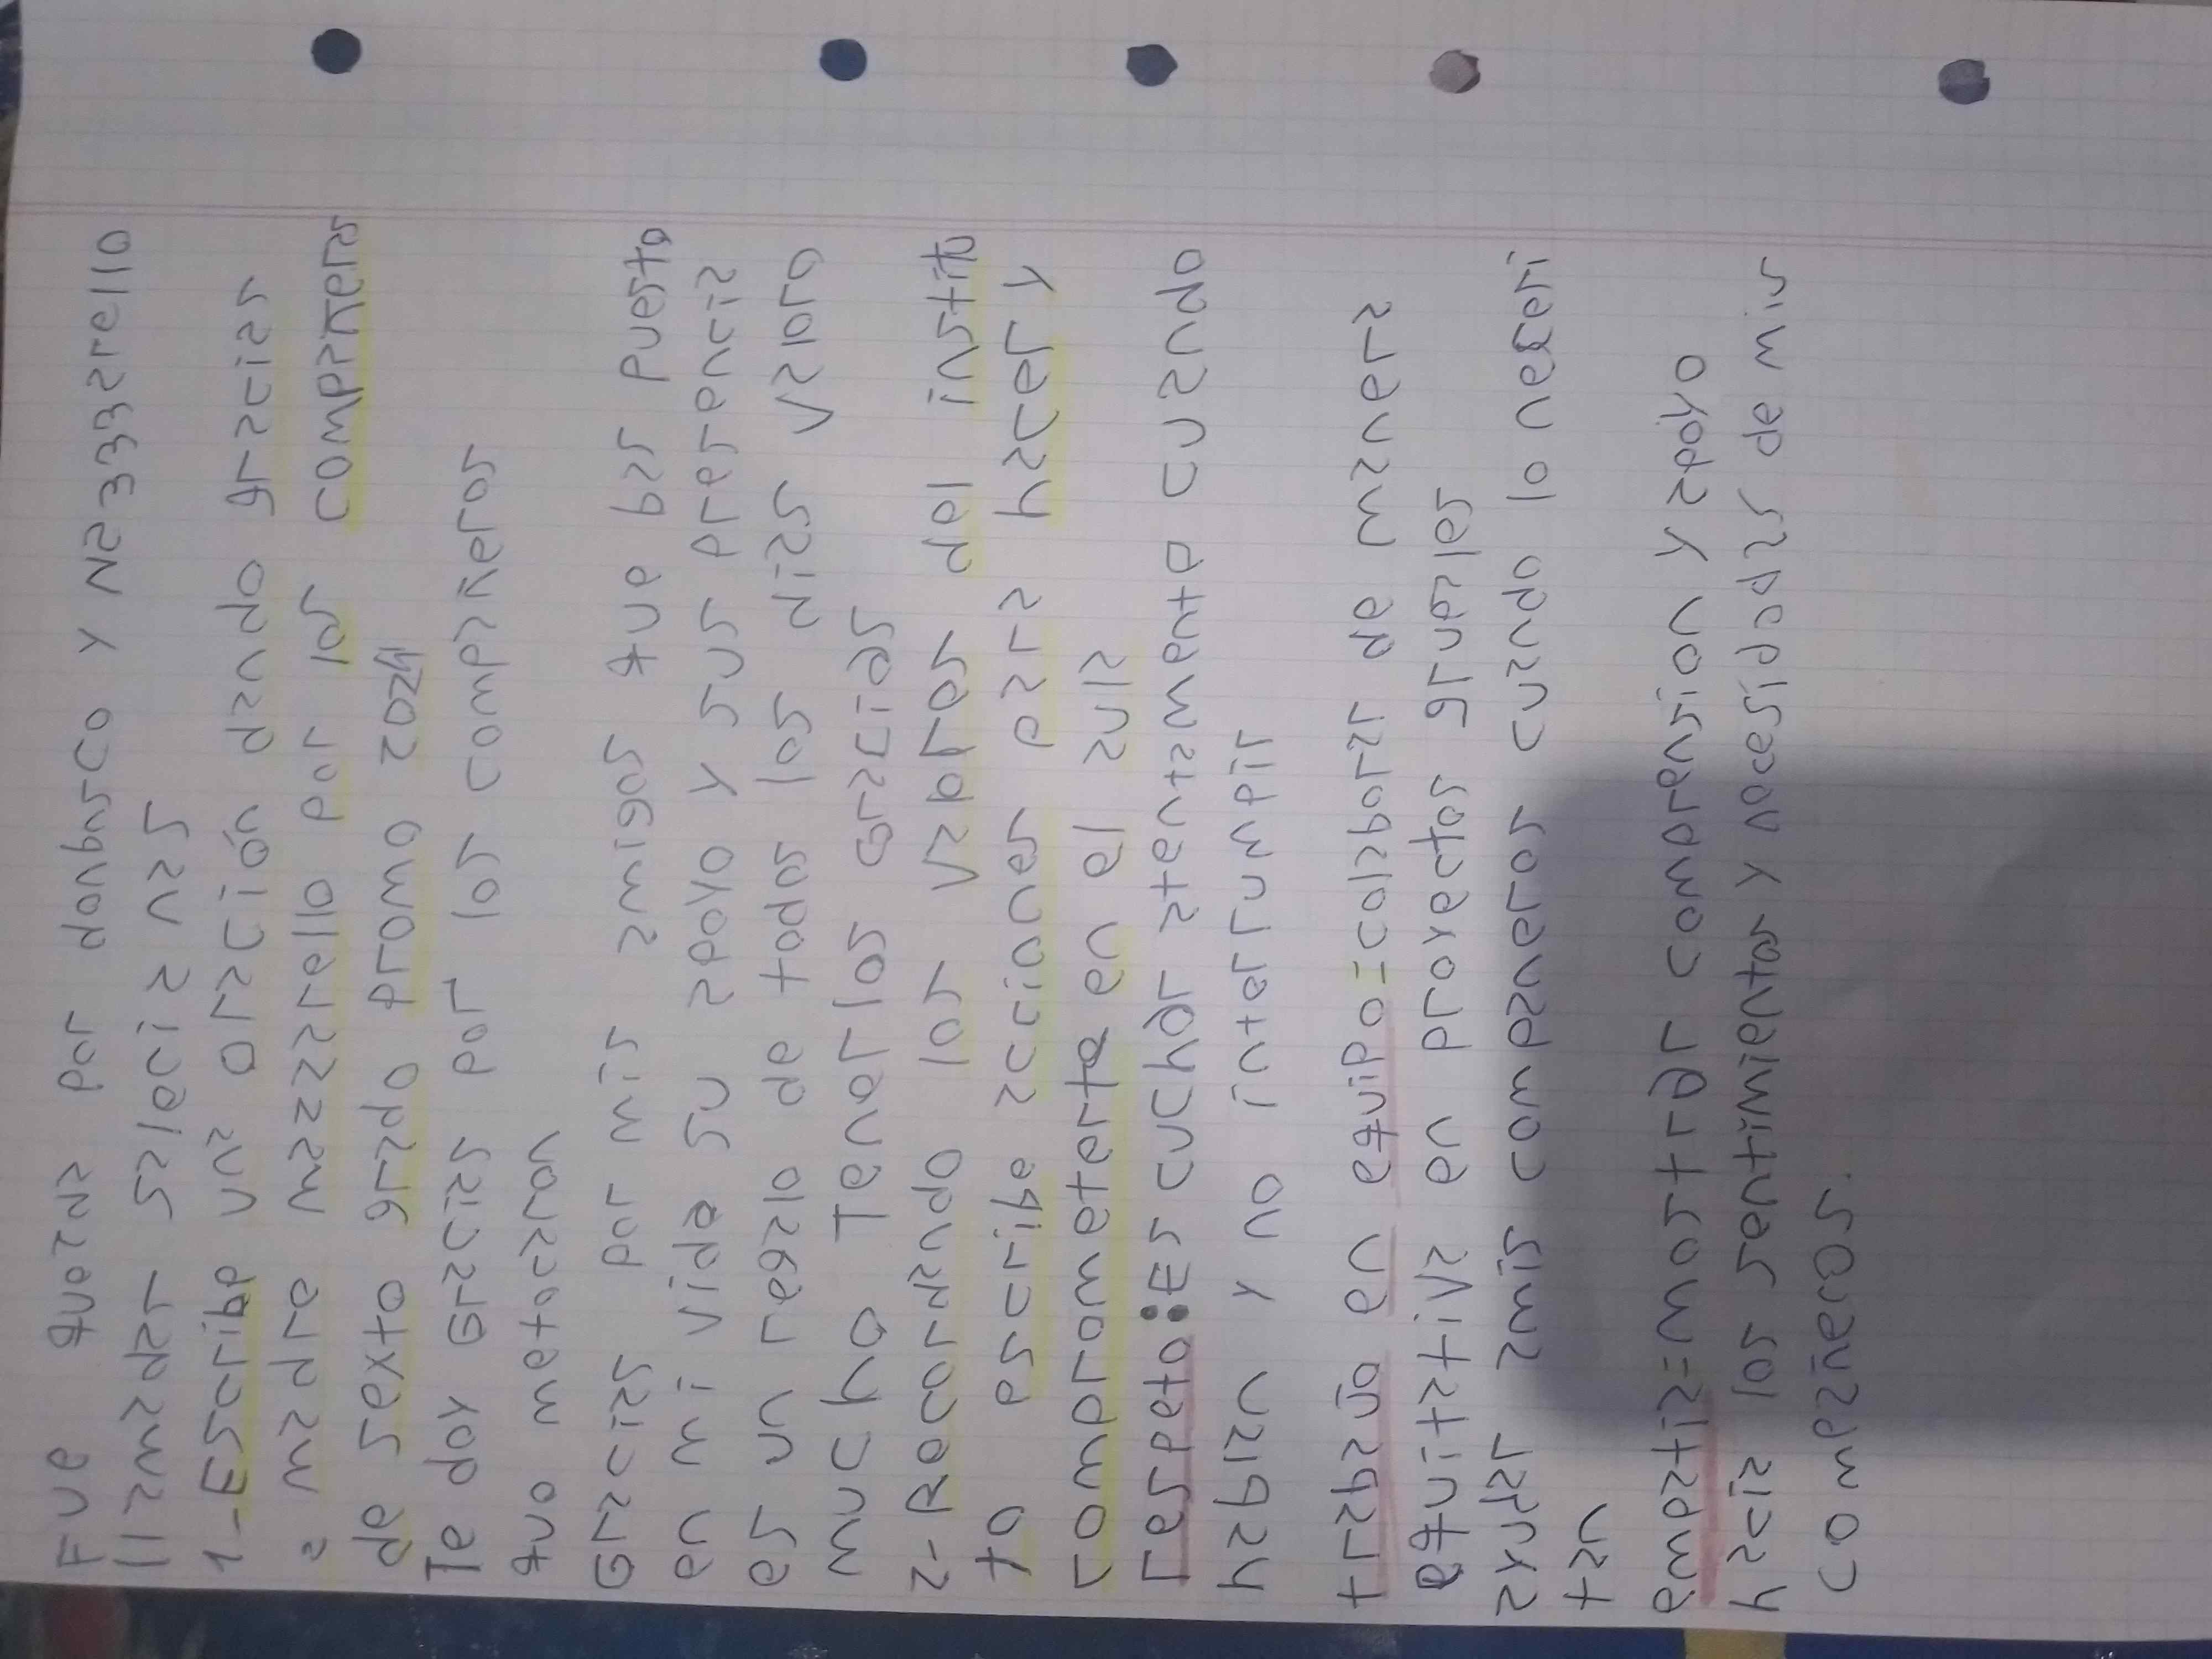 Fue querida por donbosco y Nazzarello
llamadas saleci a nas
1-Escribe una oración dando gracias
a madre mazzarello por las compañeras
de sexto grado promo 2024
Te doy Gracias por los compañeros
que me tocaron
Gracias por mis amigos que has puesto
en mi vida su apoyo y sus presencia
es un regalo de todos los dias valoro
mucho Tenerlos Gracias
2-Recordando los valores del institu
to escribe acciones para hacer y
comprometerte en el aula
respeto: Es cuchar atentamente cuando
hablan y no interrumpir
trabajo en equipo=colaborar de manera
equitativa en proyectos gruales
ayudar a mis compañeros cuando lo neseri
tan
empatia=mostrar comprension y apoyo
hacia los sentimientos y necesidades de mis
compañeros.